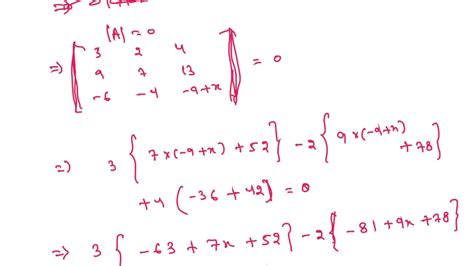 |A| = 0
3 2 4
=> 9 7 13 = 0
-6 -4 -9+x
=> 3 { 7x(-9+x) + 52 } - 2 { 9x(-9+x) + 78 }
+4 ( -36 + 42 ) = 0
=> 3 { -63 + 7x + 52 } - 2 { -81 + 9x + 78 }